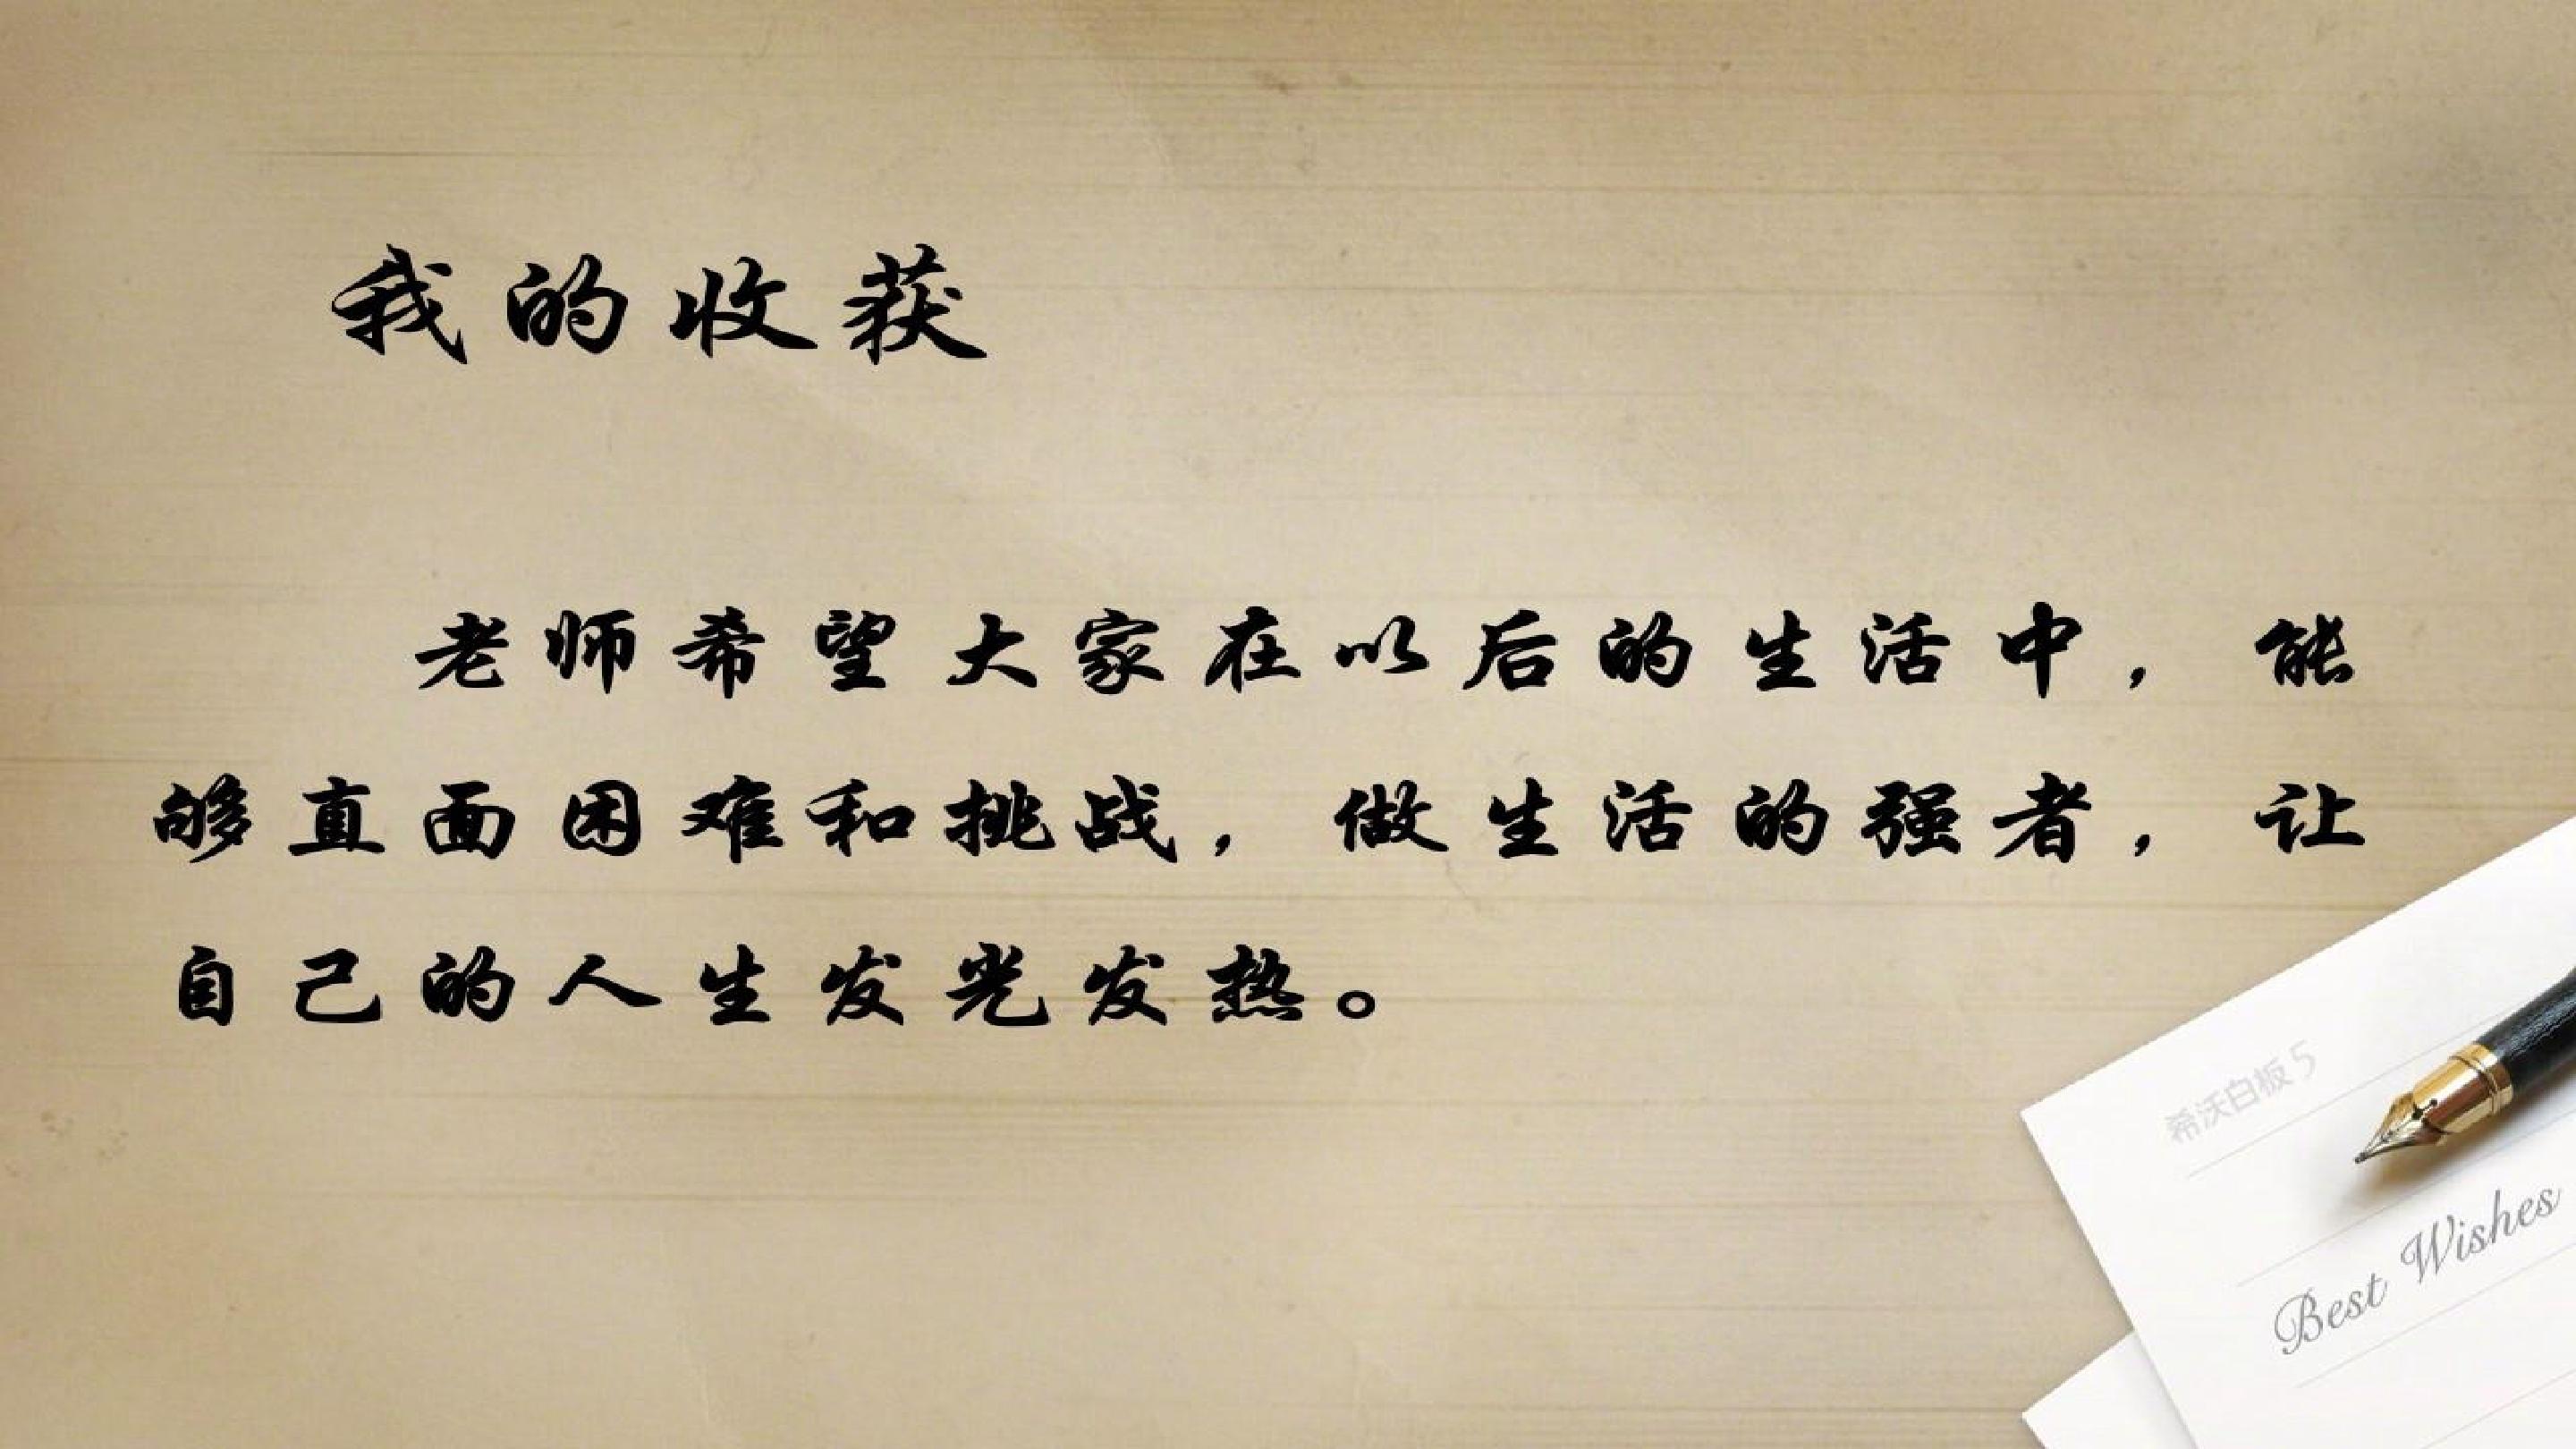 我的收获
老师希望大家在以后的生活中，能
够直面困难和挑战，做生活的强者，让
自己的人生发光发热。
希沃白板5
Best Wishes